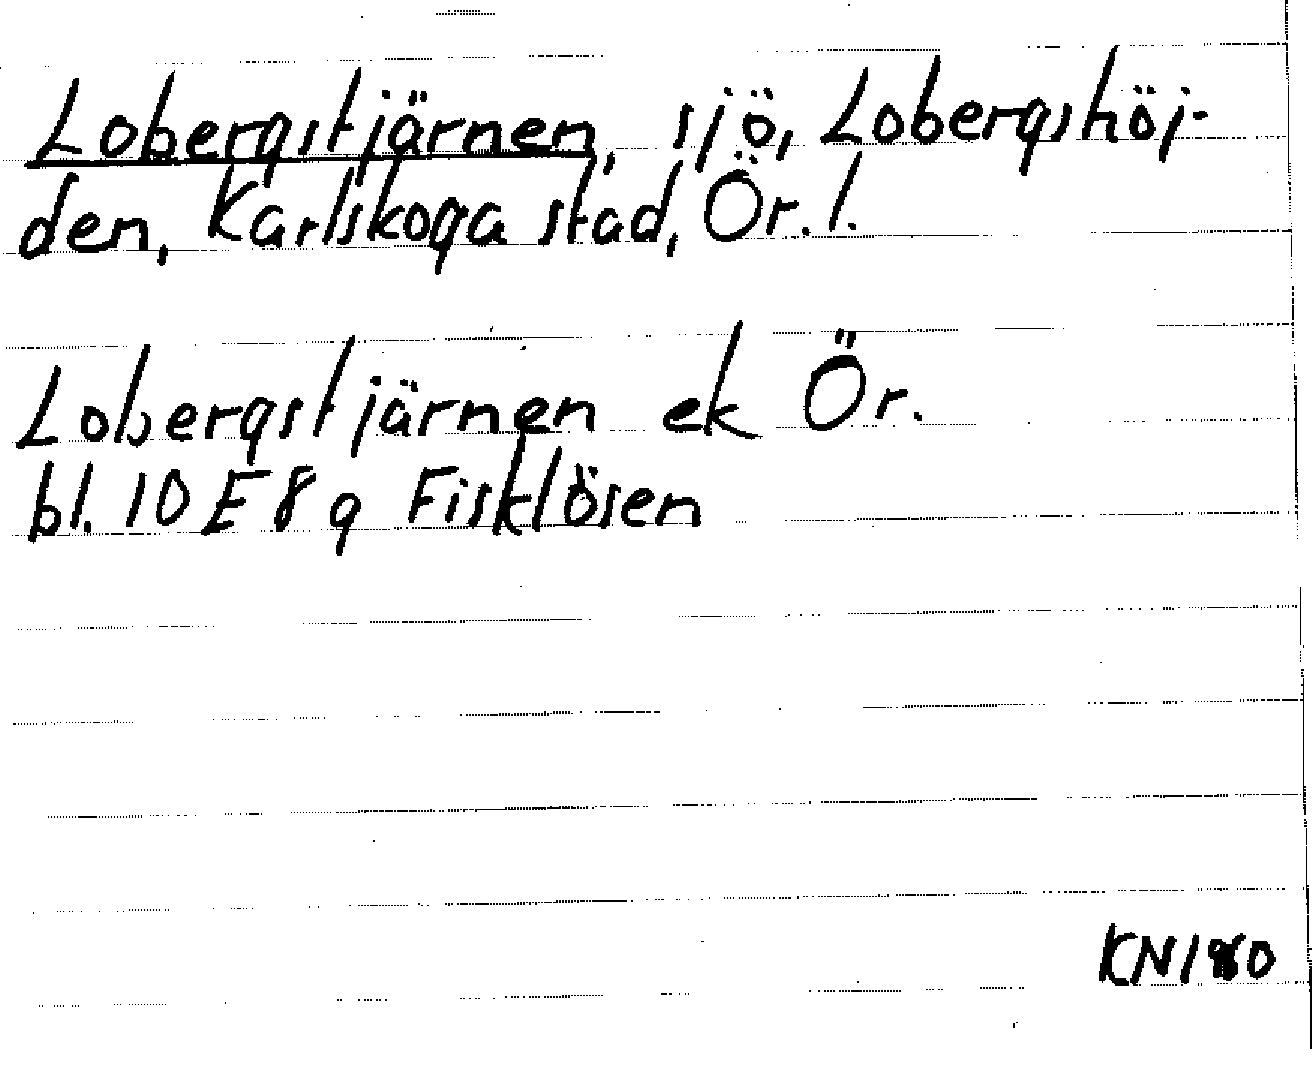 Lobergstjärnen, sjö, Lobergshöj-
den, Karlskoga stad, Ör. l.
Lobergstjärnen ek Ör.
bl. 10 E 8 g Fisklösen